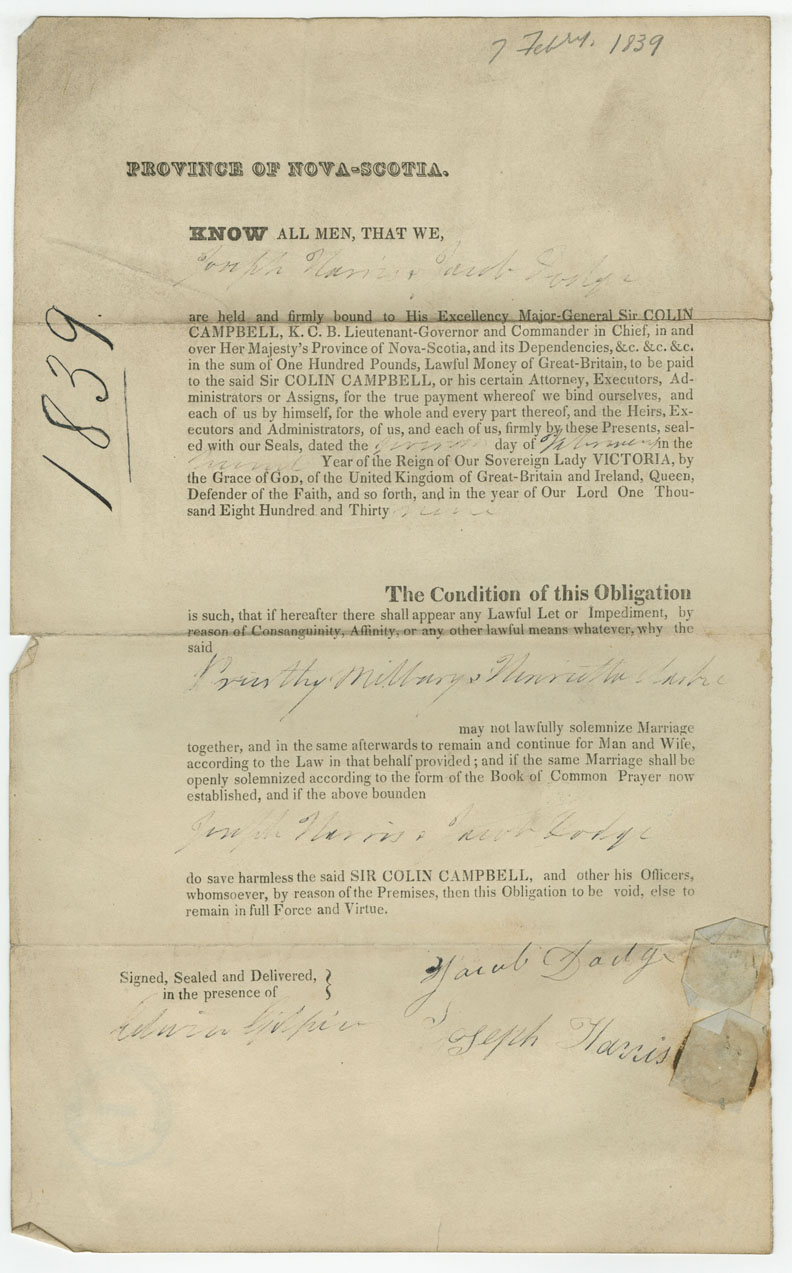 7 Febry. 1839
PROVINCE OF NOVA-SCOTIA.
KNOW ALL MEN, THAT WE,
Joseph Harris & Jacob Dodge
are held and firmly bound to His Excellency Major-General Sir COLIN
CAMPBELL, K. C. B. Lieutenant-Governor and Commander in Chief, in and
over Her Majesty's Province of Nova-Scotia, and its Dependencies, &c. &c. &c.
in the sum of One Hundred Pounds, Lawful Money of Great-Britain, to be paid
to the said Sir COLIN CAMPBELL, or his certain Attorney, Executors, Ad-
ministrators or Assigns, for the true payment whereof we bind ourselves, and
each of us by himself, for the whole and every part thereof, and the Heirs, Ex-
ecutors and Administrators, of us, and each of us, firmly by these Presents, seal-
ed with our Seals, dated the seventh day of February in the
Year of the Reign of Our Sovereign Lady VICTORIA, by
the Grace of GOD, of the United Kingdom of Great-Britain and Ireland, Queen,
Defender of the Faith, and so forth, and in the year of Our Lord One Thou-
sand Eight Hundred and Thirty nine
1839.
The Condition of this Obligation
is such, that if hereafter there shall appear any Lawful Let or Impediment, by
reason of Consanguinity, Affinity, or any other lawful means whatever, why the
said
Milbury & Henrietta
may not lawfully solemnize Marriage
together, and in the same afterwards to remain and continue for Man and Wife,
according to the Law in that behalf provided; and if the same Marriage shall be
openly solemnized according to the form of the Book of Common Prayer now
established, and if the above bounden
Joseph Harris & Jacob Dodge
do save harmless the said SIR COLIN CAMPBELL, and other his Officers,
whomsoever, by reason of the Premises, then this Obligation to be void, else to
remain in full Force and Virtue.
Signed, Sealed and Delivered,
in the presence of
Edwin Gilpin
Jacob Dodge
Joseph Harris